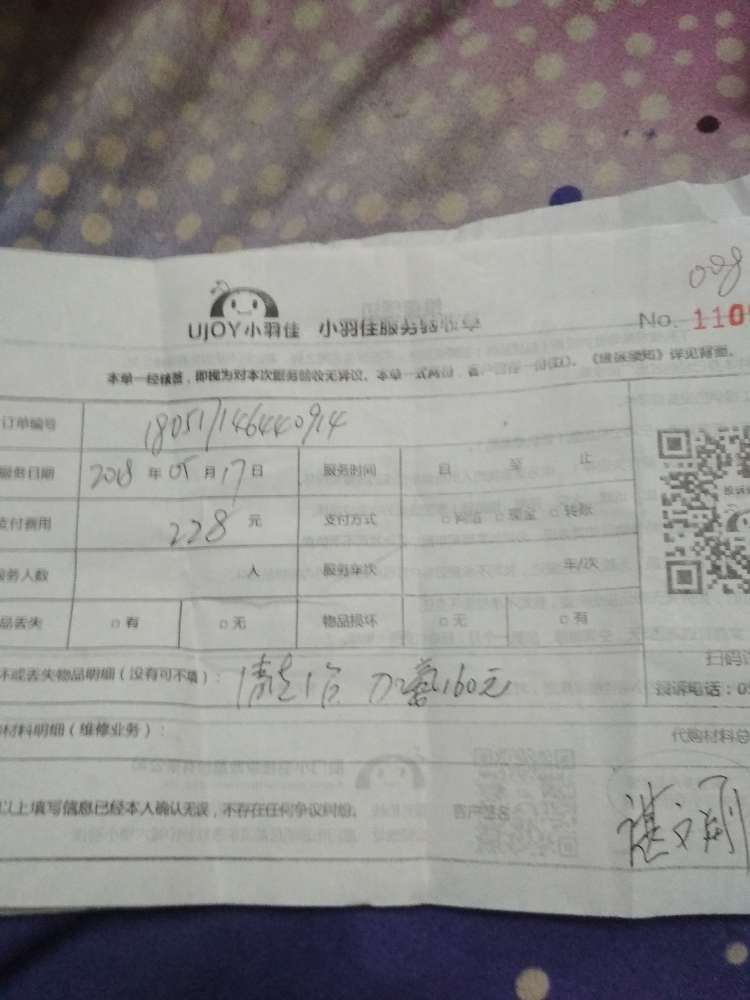 008
UJOY小羽佳 小羽佳服务验收单 No. 110
本单一经核签，即视为对本次服务验收无异议。本单一式两份，客户留存一份(红)。《投诉须知》详见背面。
订单编号 180517146440914
服务日期 2018 年 05 月 17 日 服务时间 自 至 止
支付费用 228 元 支付方式 □ 网络 □ 现金 □ 转账
服务人数 人 服务车次 车/次
品丢失 □ 有 □ 无 物品损坏 □ 无 □ 有
坏或丢失物品明细（没有可不填）： 加 160元
扫码
投诉电话：05
材料明细（维修业务）： 代购材料总
以上填写信息已经本人确认无误，不存在任何争议纠纷。
客户签名